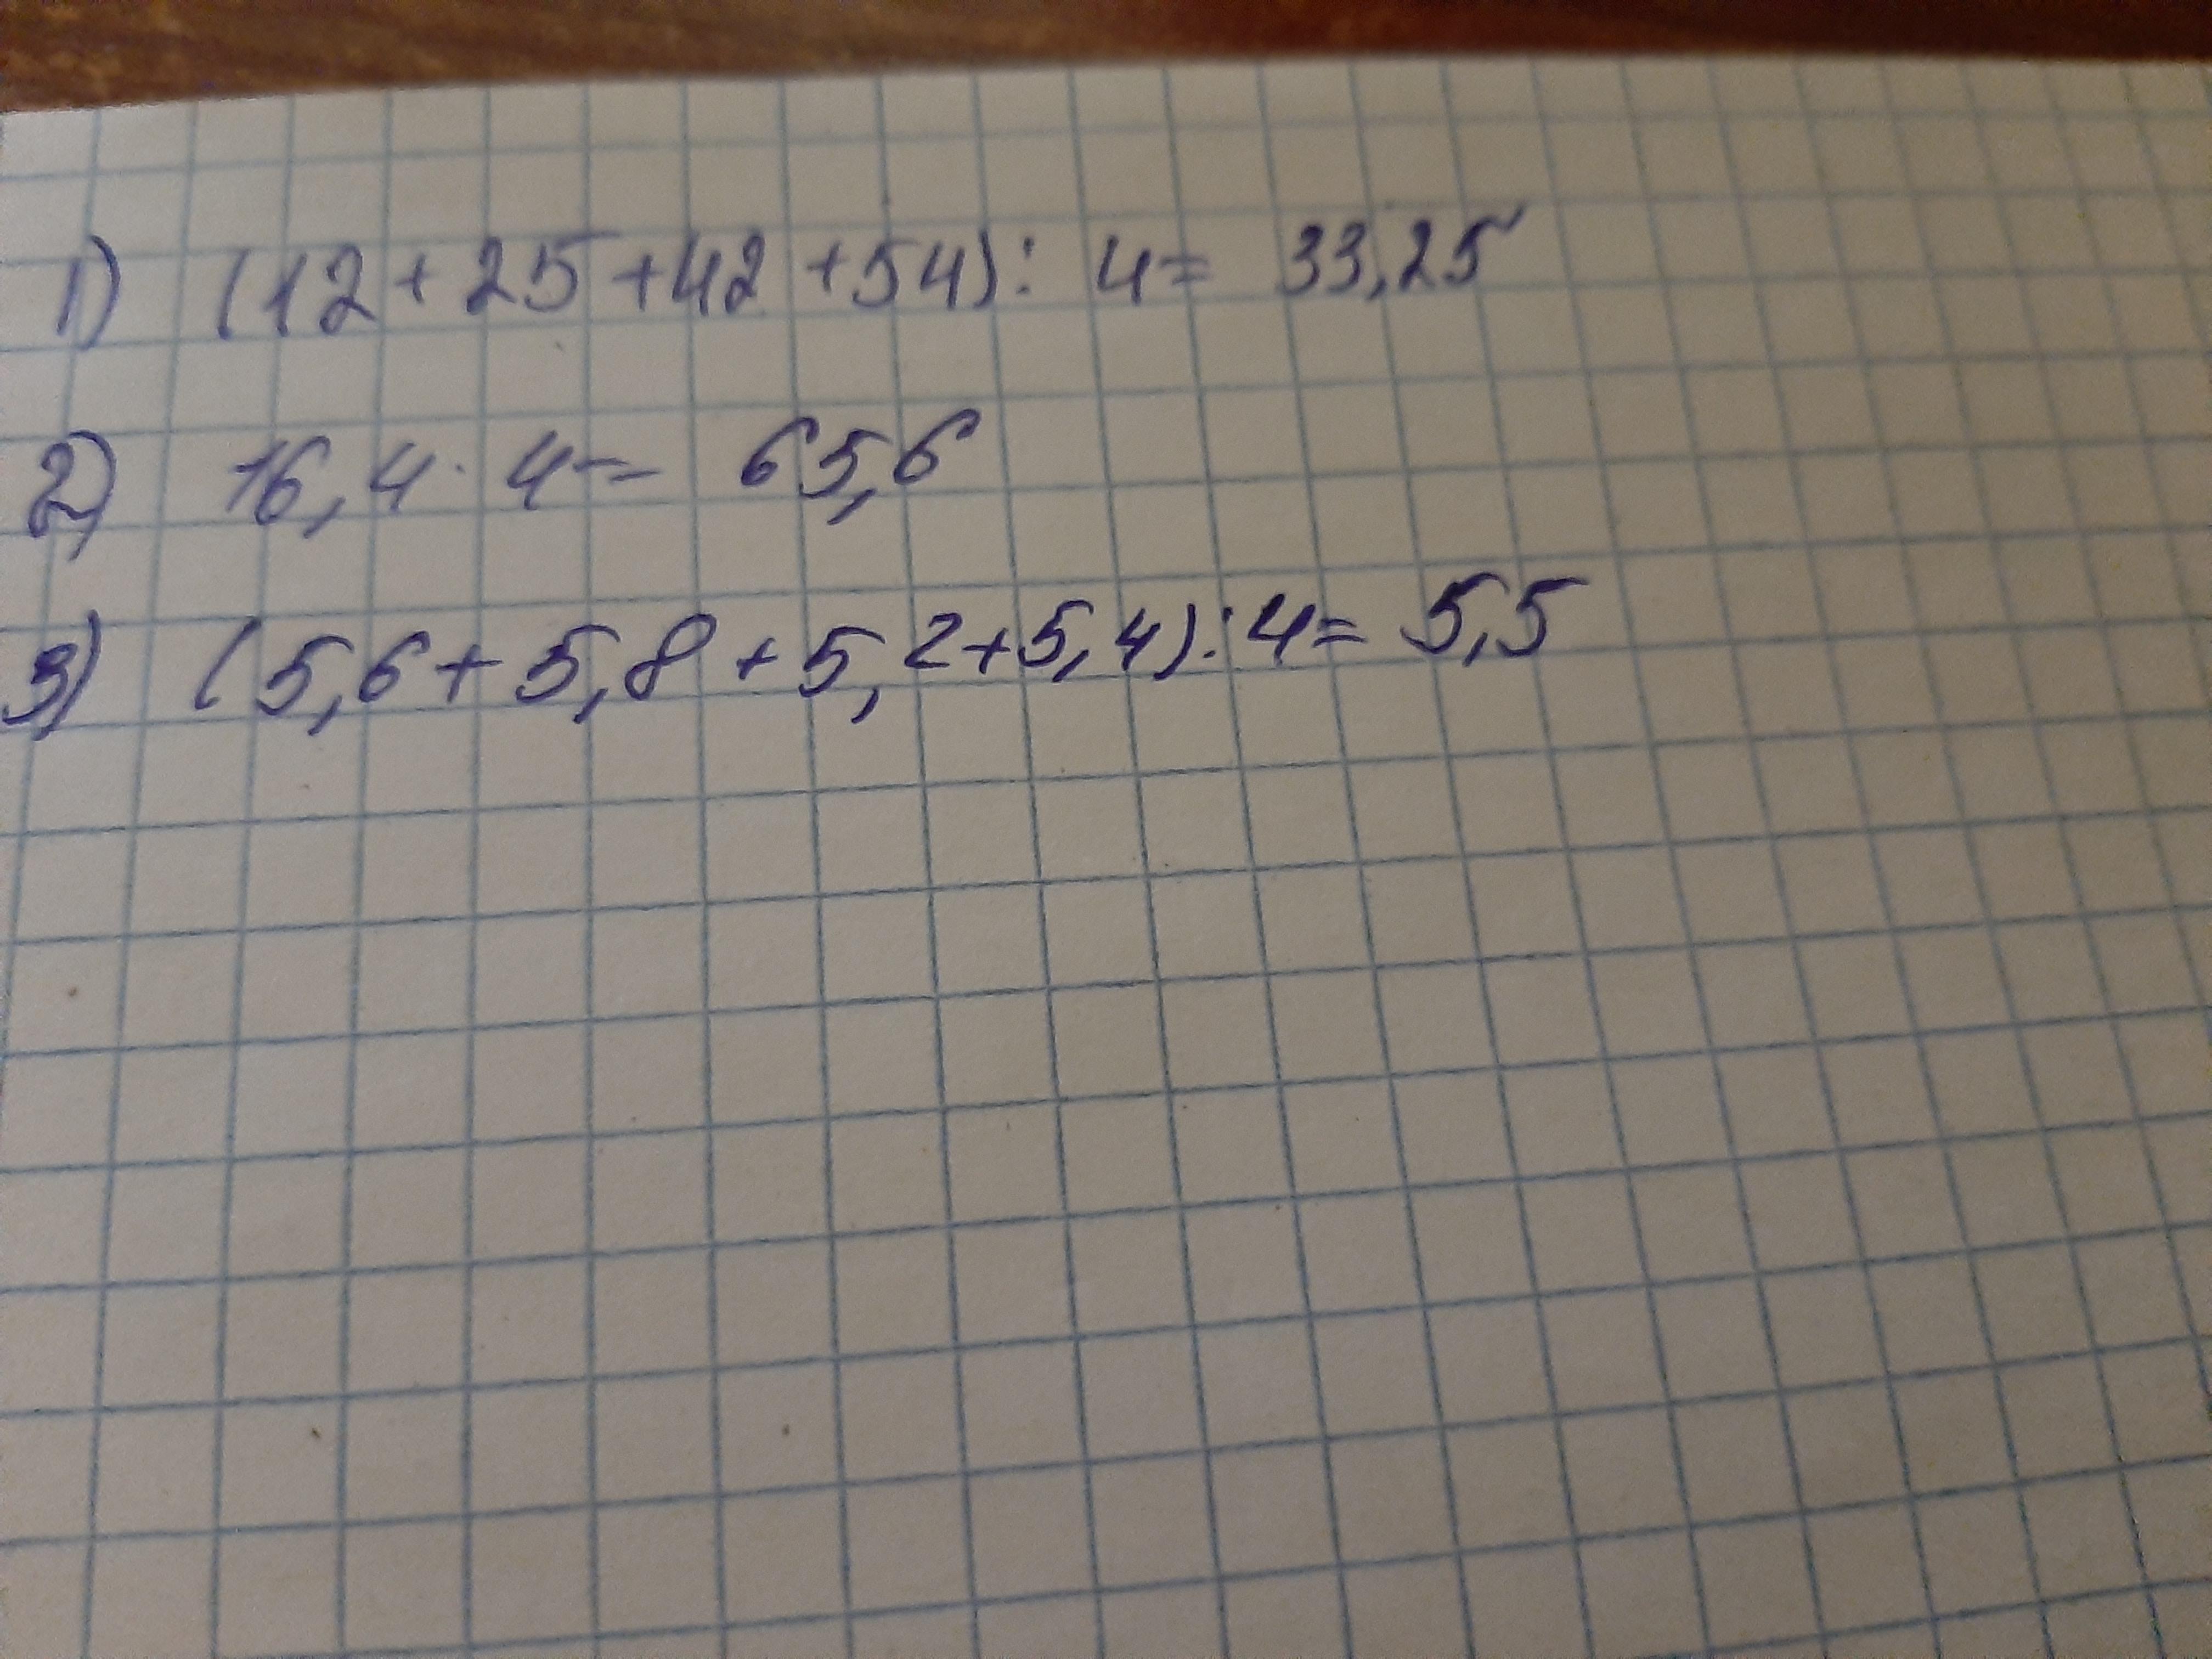 1) (12+25+42+54): 4= 33,25
2) 16,4·4= 65,6
3) (5,6+5,8+5,2+5,4):4= 5,5